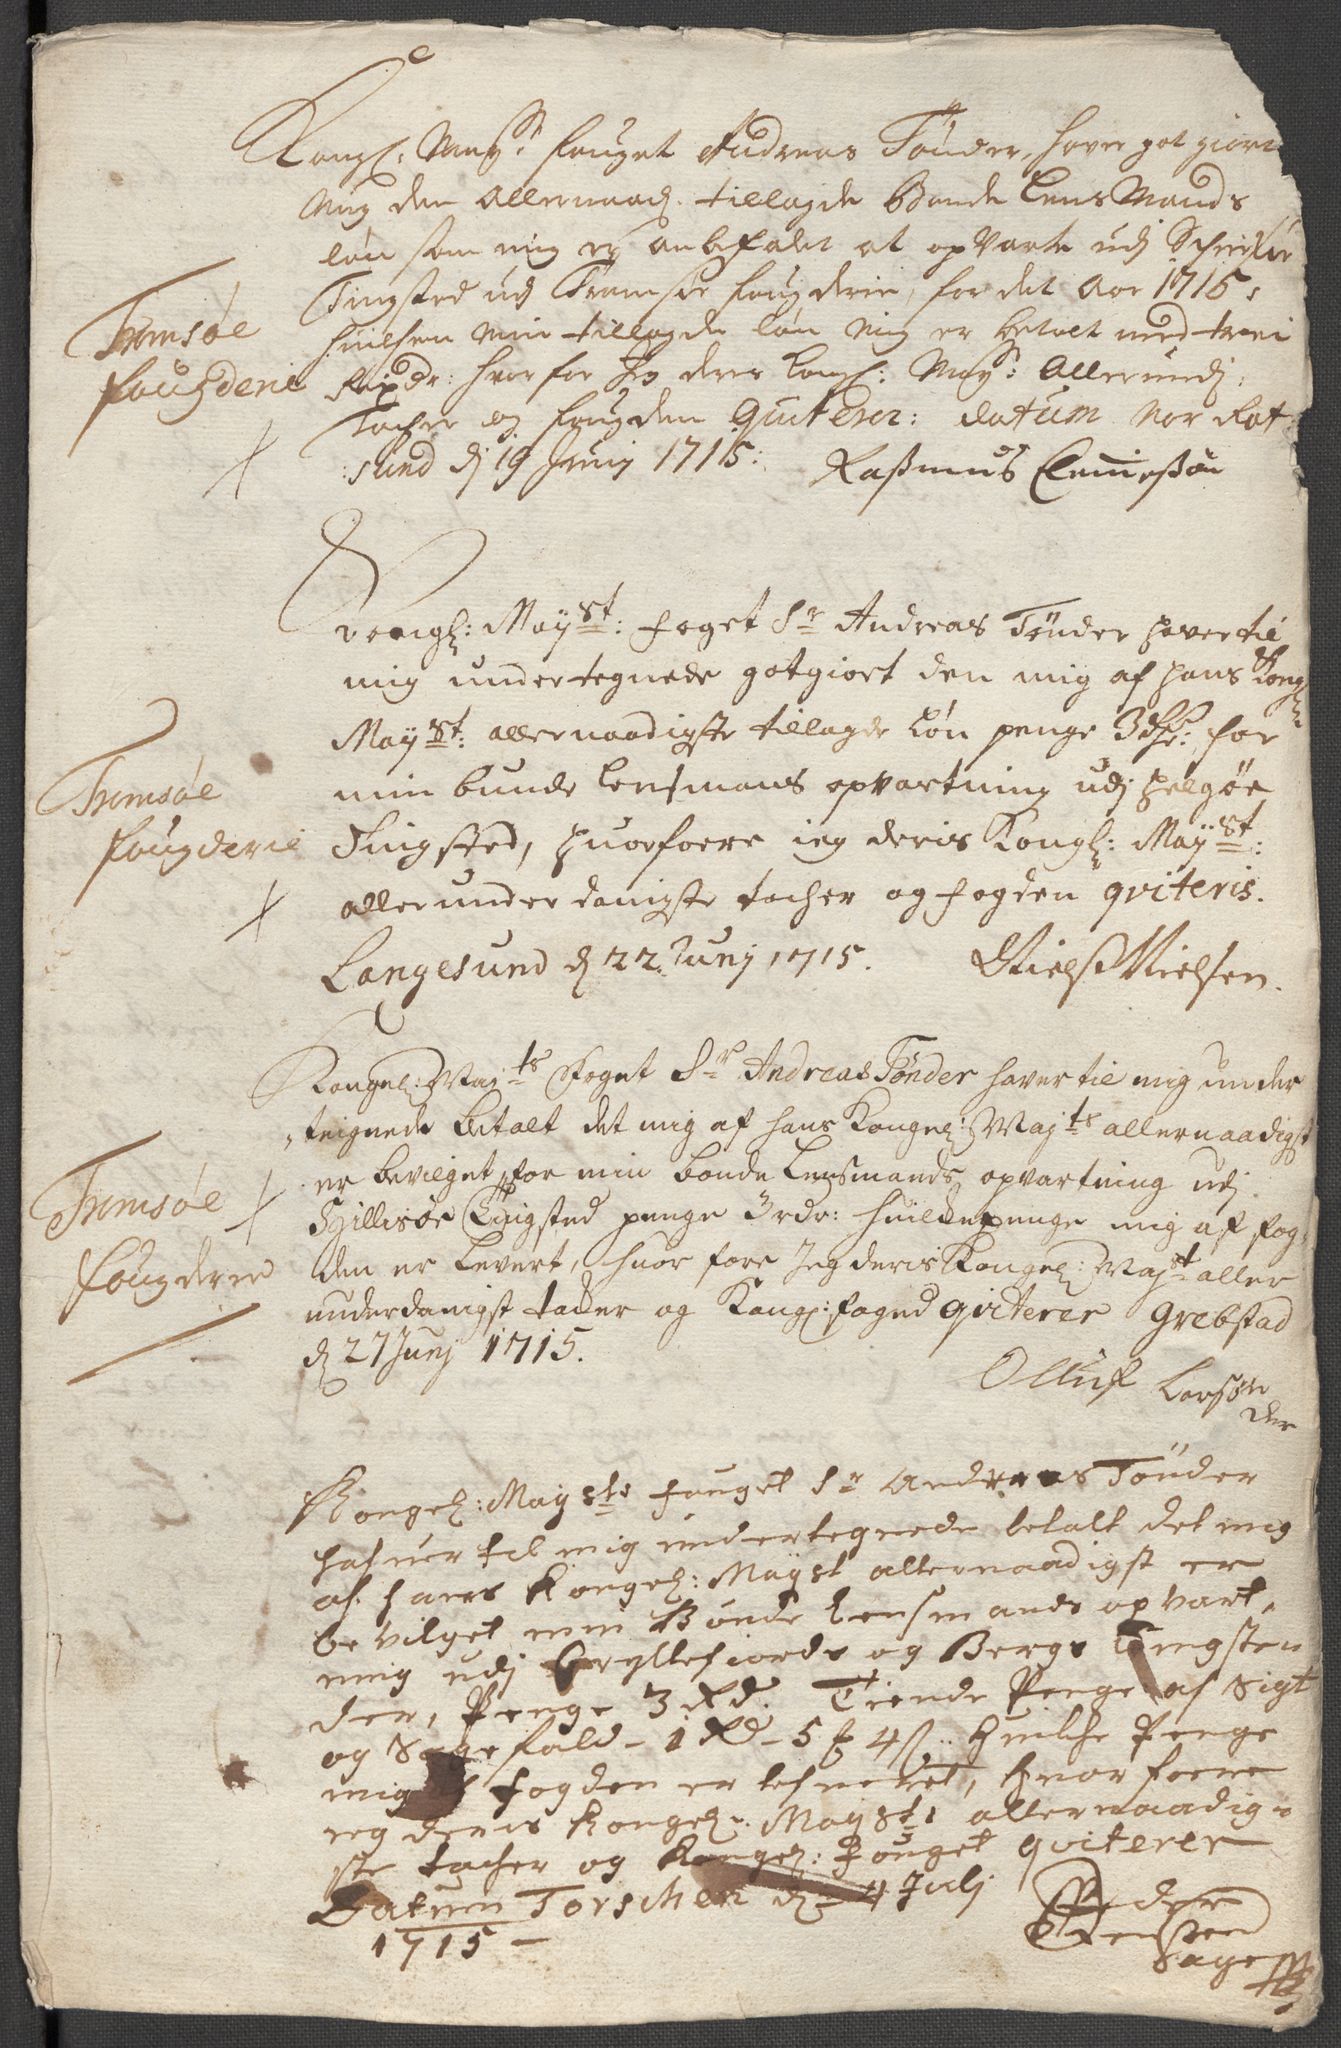 Kongl: Mayst: fouget Andreas Tønder, haver got giort
Mig den Allernaad. tillagde Bonde Lens Mands
løn som mig er anbefalet at opvarte udj
Tingsted udj Tromsøe fougderie, for det Aar 1715,
huilchen min tillagde løn Mig er betalt med trei
Rixdr: hvorfor Jeg deris Kongl: Mayst: Allerundj:
Tacher og fougden Quiterer: datum Nor Rot
:sund dj 19 Junij 1715: Rasmus Clemeßøn
Tromsøe
fougderie
Kongl: Mayst: foget Sr Andreas Tønder haver til
mig undertegnede gotgiort den mig af hans Kongl
Mayst: allernaadigste tillagde Løn penge 3 dlr: for
min bunde lensmans opvartning udj helgøe
Tingsted, huorfoere ieg deris Kongl: Mayst:
allerunderdanigste tacher og fogden qviteris.
Langesund d 22 Junj 1715. Niels Nielsen.
Tromsøe
fougderie
Kongel: Majts Foget Sr Andreas Tønder haver til mig under
teignede betalt det mig af hans Kongel: Majts allernaadigst
er bevilget for min bonde Lensmands opvartning udj
Hillisøe Tingsted penge 3 rdr: huilche penge mig af fog,
den er Levert, huor fore Jeg deris Kongel: Majst aller
underdanigst tacker og Kongl: faged qviterer Grebstad
d 27 Junj 1715.
Olluf Larsøn
Tromsøe
fougderie
Kongel: Mayst: fouget Sr Andreas Tønder
hafuer til mig undertegnede betalt det mig
af hans Kongel: Mayst allernaadigst er
bevilget min Bonde lensmands opvart,
ning udj Gryllefiords og Bergs Tingste
der, Penge 3 Rd. Tiende Penge af Sigt
og Sagefald - 1 Rd - 5 ƒ 4 ß.. huilche Penge
mig af fogden er lefueret, huor foere
ieg deris Kongel: Mayst: allernaadig,
ste tacher og Kongel: fouget qviterer
Datum Torschen d 4 Julj
1715 - Peder
Jenssen